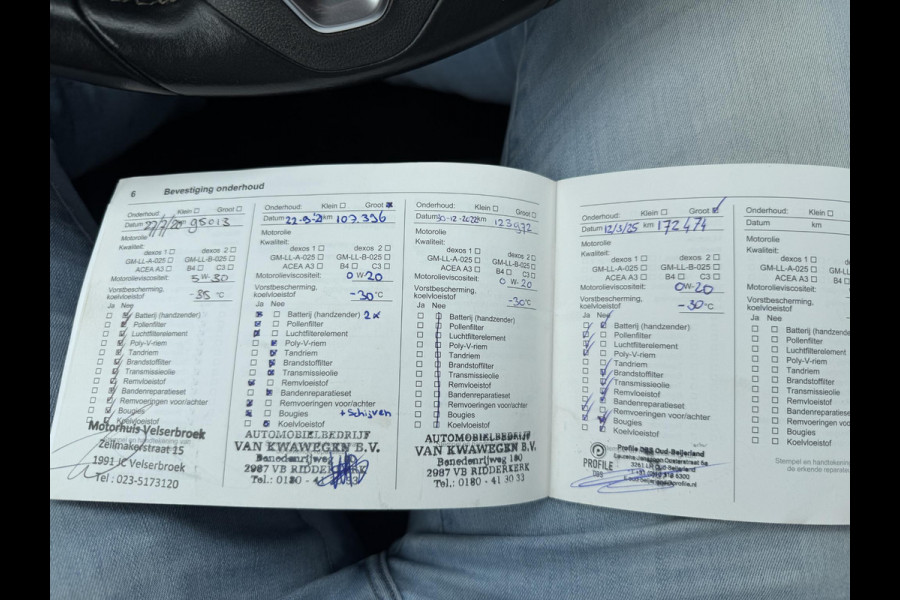 6 Bevestiging onderhoud
Onderhoud: Klein Groot
Datum 22/7/20 95013
Motorolie
Kwaliteit:
dexos 1 dexos 2
GM-LL-A-025 GM-LL-B-025
ACEA A3 B4 C3
Motorolieviscositeit: 5 W- 30
Vorstbescherming, koelvloeistof -35 °C
Ja Nee
Batterij (handzender)
Pollenfilter
Luchtfilterelement
Poly-V-riem
Tandriem
Brandstoffilter
Transmissieolie
Remvloeistof
Bandenreparatieset
Remvoeringen voor/achter
Bougies
Koelvloeistof
Motorhuis Velserbroek
Zeilmakerstraat 15
1991 JC Velserbroek
Tel : 023-5173120
Onderhoud: Klein Groot
Datum 22-9-21 km 107.396
Motorolie
Kwaliteit:
dexos 1 dexos 2
GM-LL-A-025 GM-LL-B-025
ACEA A3 B4 C3
Motorolieviscositeit: 0 W- 20
Vorstbescherming, koelvloeistof -30 °C
Ja Nee
Batterij (handzender) 2x
Pollenfilter
Luchtfilterelement
Poly-V-riem
Tandriem
Brandstoffilter
Transmissieolie
Remvloeistof
Bandenreparatieset
Remvoeringen voor/achter
Bougies + Schijven
Koelvloeistof
AUTOMOBIELBEDRIJF
VAN KWAWEGEN B.V.
Benedenrijweg 180
2987 VB RIDDERKERK
Tel.: 0180 - 41 30 33
Onderhoud: Klein Groot
Datum 30-12-2022 km 123972
Motorolie
Kwaliteit:
dexos 1 dexos 2
GM-LL-A-025 GM-LL-B-025
ACEA A3 B4 C3
Motorolieviscositeit: 0 W- 20
Vorstbescherming, koelvloeistof -30 °C
Ja Nee
Batterij (handzender)
Pollenfilter
Luchtfilterelement
Poly-V-riem
Tandriem
Brandstoffilter
Transmissieolie
Remvloeistof
Bandenreparatieset
Remvoeringen voor/achter
Bougies
Koelvloeistof
AUTOMOBIELBEDRIJF
VAN KWAWEGEN B.V.
Benedenrijweg 180
2987 VB RIDDERKERK
Tel.: 0180 - 41 30 33
Onderhoud: Klein Groot
Datum 12/3/25 km 172474
Motorolie
Kwaliteit:
dexos 1 dexos 2
GM-LL-A-025 GM-LL-B-025
ACEA A3 B4 C3
Motorolieviscositeit: 0W-20
Vorstbescherming, koelvloeistof -30 °C
Ja Nee
Batterij (handzender)
Pollenfilter
Luchtfilterelement
Poly-V-riem
Tandriem
Brandstoffilter
Transmissieolie
Remvloeistof
Bandenreparatieset
Remvoeringen voor/achter
Bougies
Koelvloeistof
PROFILE
Profile DBS Oud-Beijerland
Onderhoud: Klein
Datum km
Motorolie
Kwaliteit:
dexos 1
GM-LL-A-025 GM-LL-B
ACEA A3 B4
Motorolieviscositeit:
Vorstbescherming, koelvloeistof
Ja Nee
Batterij (handzender)
Pollenfilter
Luchtfilterelement
Poly-V-riem
Tandriem
Brandstoffilter
Transmissieolie
Remvloeistof
Bandenreparatieset
Remvoeringen voor/ac
Bougies
Koelvloeistof
Stempel en handtekening
de erkende reparateur